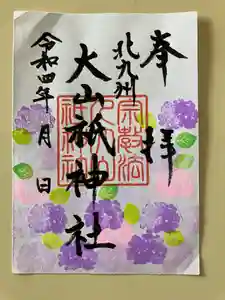 奉拝
北九州
大山祇神社
令和四年 月 日